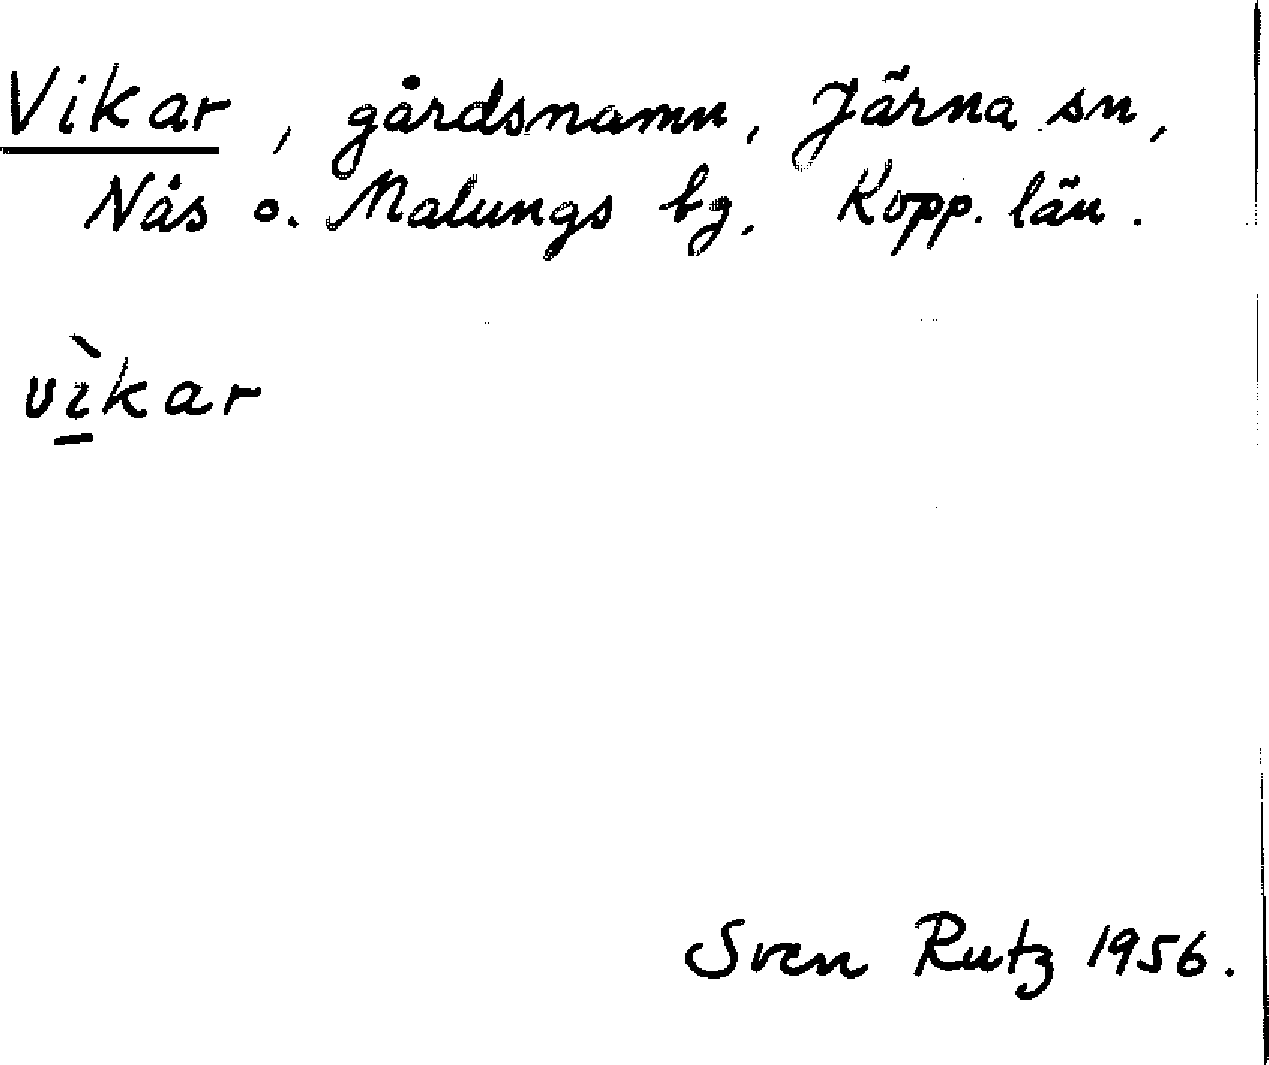 Vikar, gårdsnamn, Järna sn,
Nås o. Malungs bg. Kopp. län.
vı̱̀kar
Sven Rutz 1956.